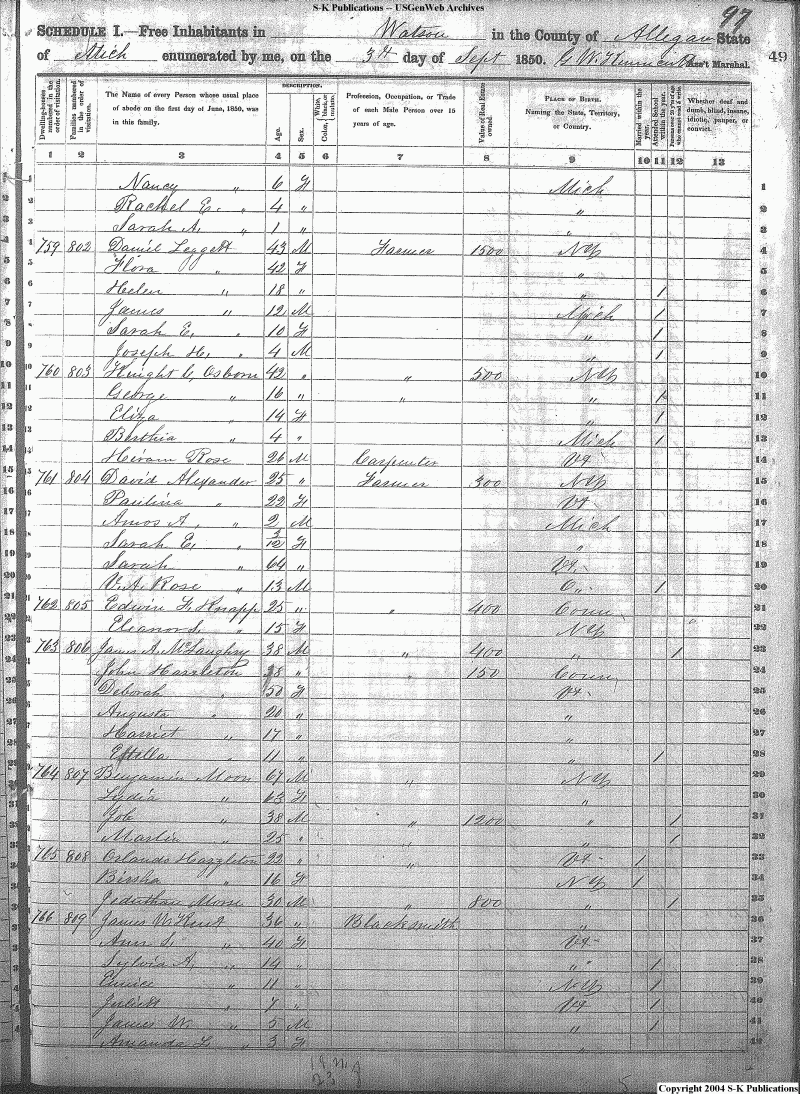 S-K Publications -- USGenWeb Archives
97
SCHEDULE I.—Free Inhabitants in Watson in the County of Allegan State
of Mich enumerated by me, on the 3d day of Sept 1850. G W Ass't Marshal. 49
Dwelling-houses numbered in the order of visitation.
Families numbered in the order of visitation.
The Name of every Person whose usual place of abode on the first day of June, 1850, was in this family.
DESCRIPTION.
Age.
Sex.
Color, White, black, or mulatto.
Profession, Occupation, or Trade of each Male Person over 15 years of age.
Value of Real Estate owned.
PLACE OF BIRTH. Naming the State, Territory, or Country.
Married within the year.
Attended School within the year.
Persons over 20 y'rs of age who cannot read & write.
Whether deaf and dumb, blind, insane, idiotic, pauper, or convict.
1 2 3 4 5 6 7 8 9 10 11 12 13
1 Nancy " 6 F Mich 1
2 Rachel E. " 4 " " 2
3 Sarah A. " 1 " " 3
4 759 802 Daniel Leggett 43 M Farmer 1500 NY 4
5 Flora " 42 F " 5
6 Helen " 18 " " 1 6
7 James " 12 M Mich 1 7
8 Sarah E. " 10 F " 1 8
9 Joseph H. " 4 M " 1 9
10 760 803 Knight C. Osborn 42 " " 500 NY 10
11 George " 16 " " " 1 11
12 Eliza " 14 F " 1 12
13 Berthia " 4 " Mich 1 13
14 Hiram Rose 26 M Carpenter Vt 14
15 761 804 David Alexander 25 " Farmer 300 NY 15
16 Paulina " 22 F Vt 16
17 Amos A. " 2 M Mich 17
18 Sarah E. " 3/12 F " 18
19 Sarah " 64 " Vt 19
20 V. A. Rose " 13 M O " 1 20
21 762 805 Edwin F. Knapp 25 " " 400 Conn 21
22 Eleanor S. " 15 F NY 22
23 763 806 James A. McLaughry 38 M " 400 " 1 23
24 John Hazzleton 38 " " 150 Conn 24
25 Deborah " 50 F Vt 25
26 Augusta " 20 " " 26
27 Harriet " 17 " " 27
28 Estella " 11 " " 1 28
29 764 807 Benjamin Moon 67 M " NY 29
30 Lydia " 63 F " 30
31 Job " 38 M " 1200 " 1 31
32 Martin " 25 " " " 1 32
33 765 808 Orlando Hazzleton 22 " " Vt 1 33
34 " 16 F NY 1 34
35 Jeduthan Morse 30 M " 800 " 1 35
36 766 809 James W. Kent 36 " Blacksmith " 36
37 Ann S. " 40 F Vt 37
38 Sylvia A. " 14 " " 1 38
39 Eunice " 11 " NY 1 39
40 Juliett " 7 " Vt 1 40
41 James W. " 5 M " 1 41
42 Amanda L. " 3 F " 42
Copyright 2004 S-K Publications